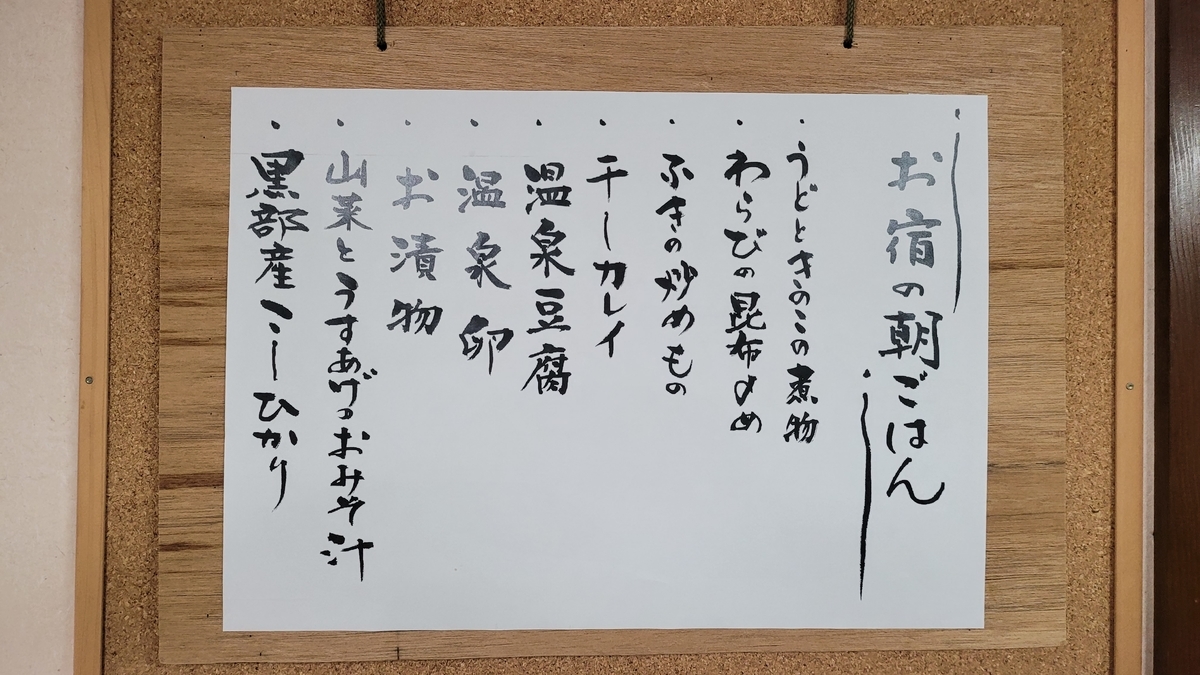 お宿の朝ごはん
・うどときのこの煮物
・わらびの昆布〆め
・ふきの炒めもの
・干しカレイ
・温泉豆腐
・温泉卵
・お漬物
・山菜とうすあげのおみそ汁
・黒部産こしひかり